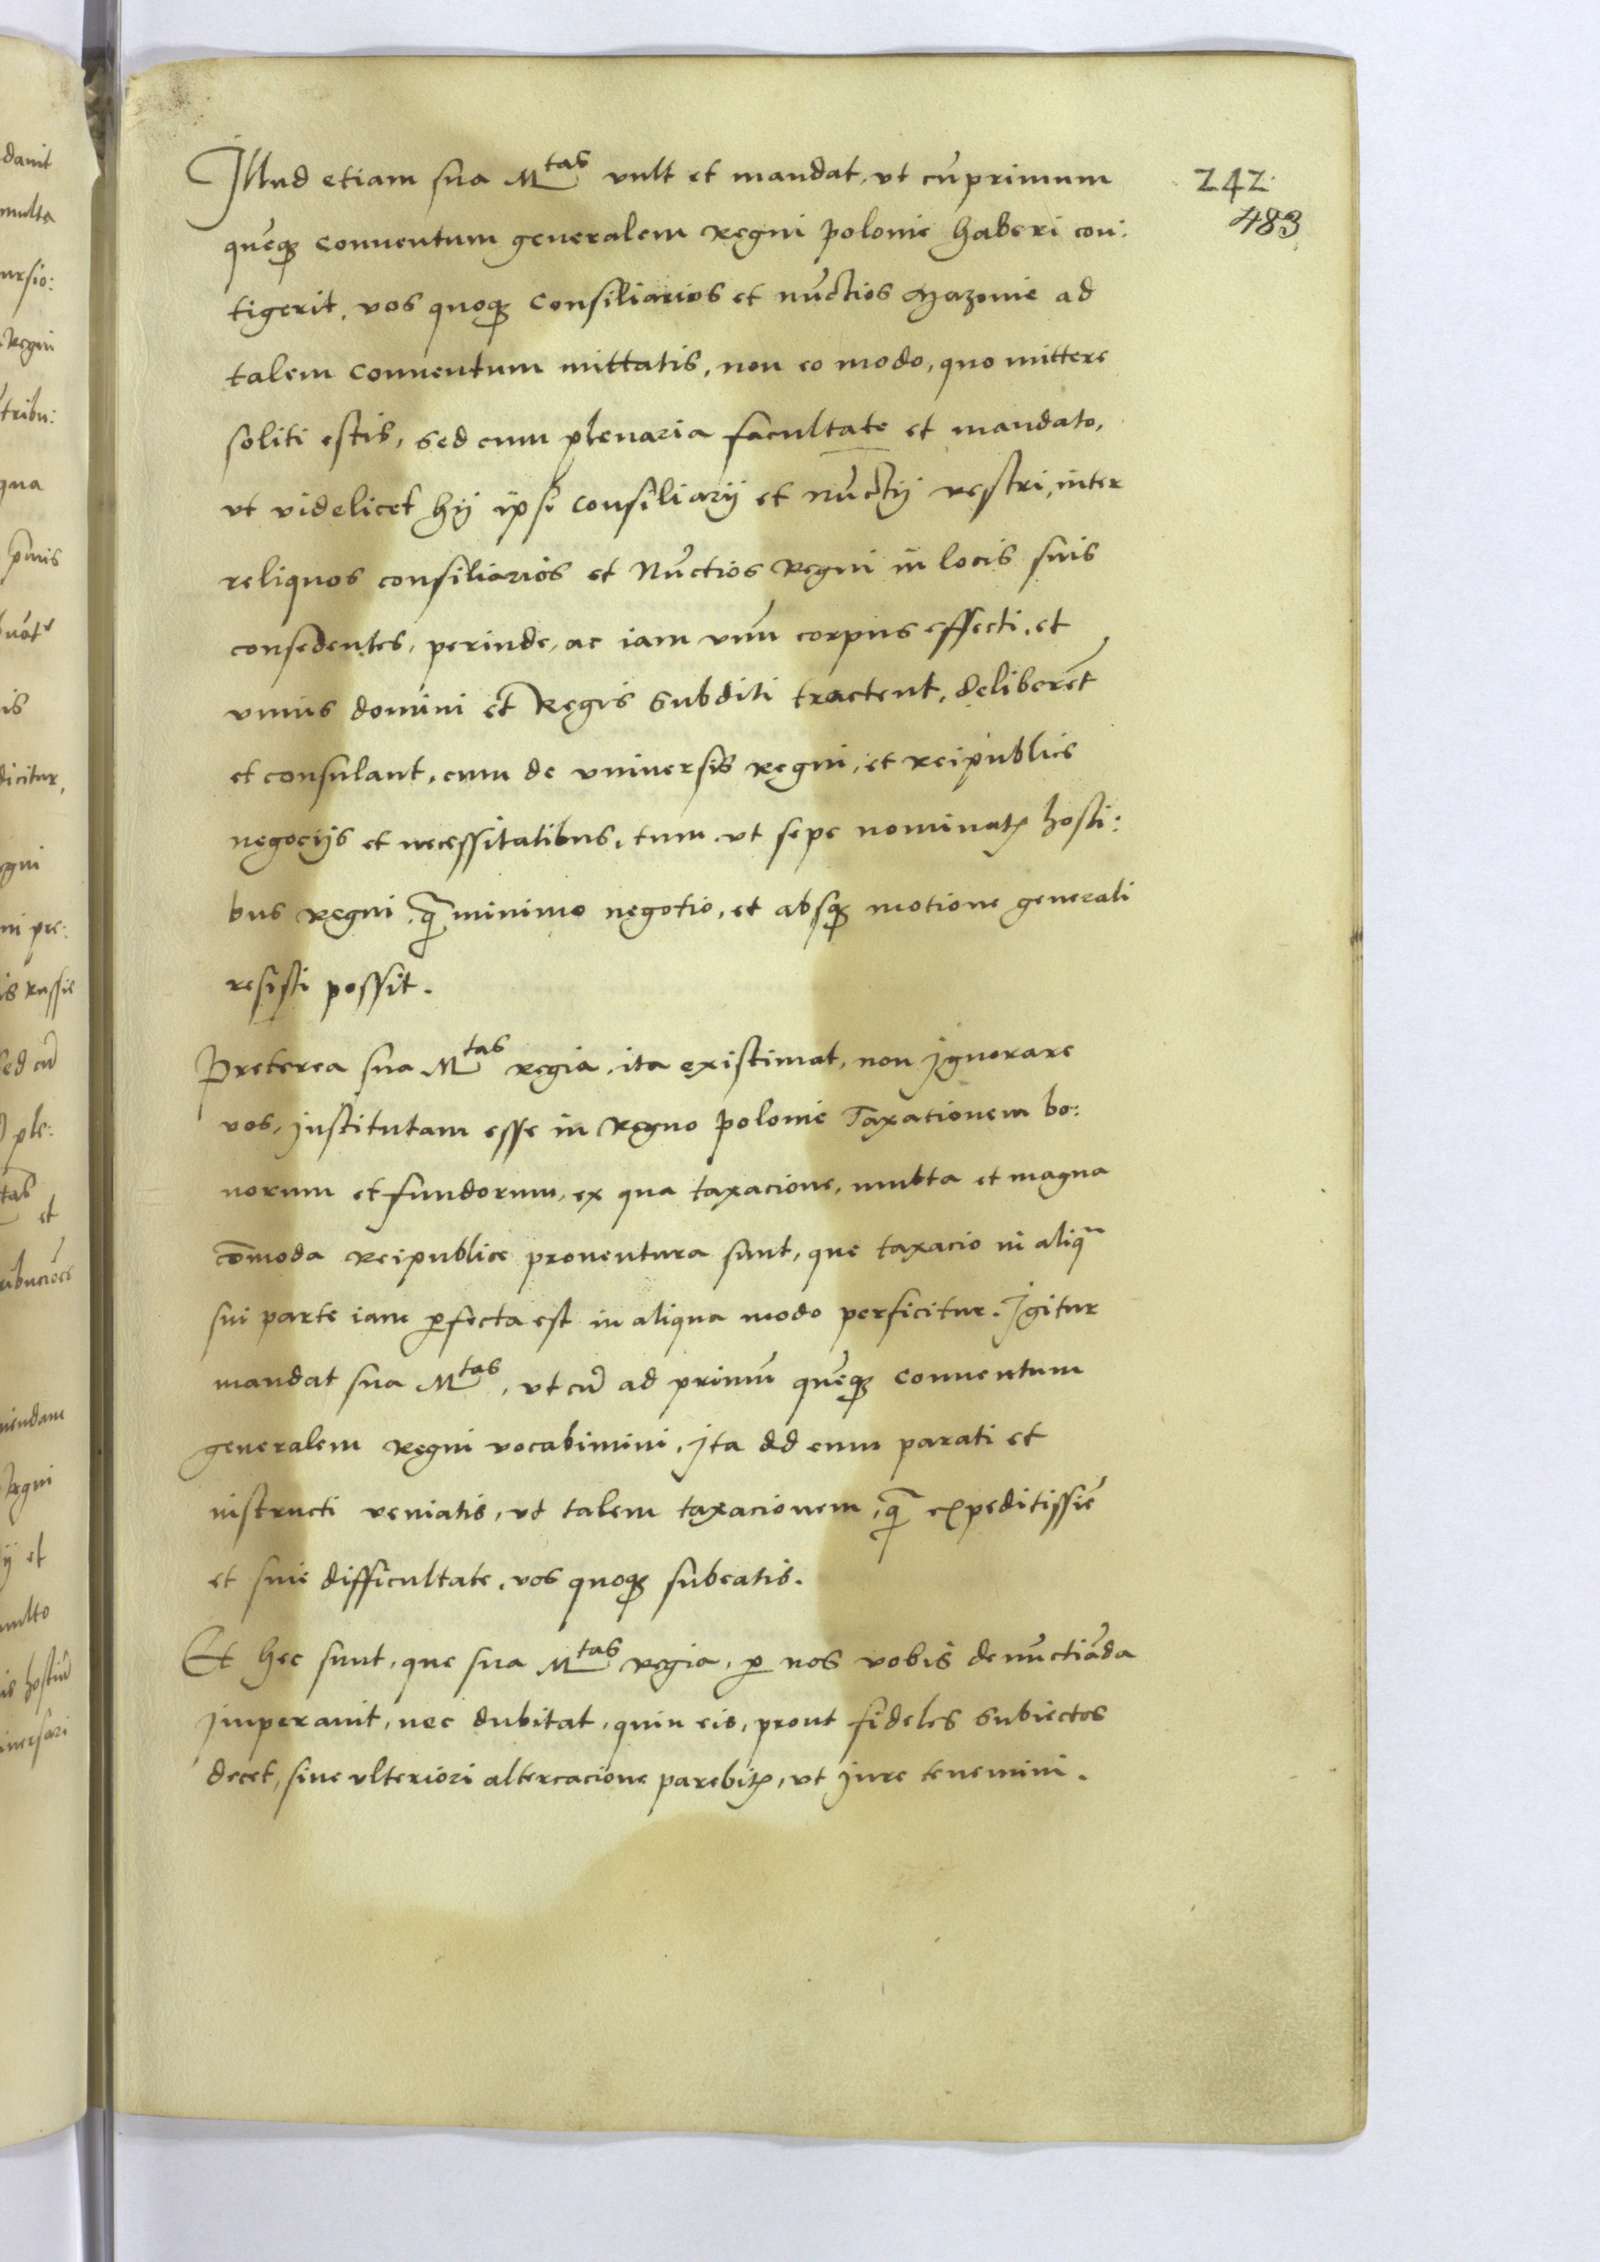 Illud etiam sua M^tas vult et mandat, vt cū primum
quēq3 conuentum generalem Regni polonie haberi con:
tigerit, vos quoq3 Consiliarios et nūctios Mazouie ad
talem conuentum mittatis, non eo modo, quo mittere
soliti estis, sed cum plenaria facultate et mandato,
vt videlicet hij ipsi consiliarij et nūctij vestri, inter
reliquos consiliarios et Nūctios Regni in locis suis
consedentes, perinde, ac iam vnū corpus effecti, et
vnius domini et Regis subditi tractent, deliberēt
et consulant, cum de vniuersis Regni, et reipublice
negocijs et necessitatibus, tum vt sepe nominatꝭ hosti:
bus Regni, q̄ minimo negotio, et absq3 motione generali
resisti possit.
Preterea sua M^tas regia, ita existimat, non Ignorare
vos, Institutam esse in Regno polonie Taxationem bo:
norum et fundorum, ex qua taxacione, multa et magna
cōmoda Reipublice prouentura sunt, que taxacio in aliq^a
sui parte iam ꝑfecta est in aliqua modo perficitur. Igitur
mandat sua M^tas, vt cū ad primū quēq3 conuentum
generalem Regni vocabimini, Ita ad eum parati et
instructi veniatis, vt talem taxacionem, q̄ expeditissīe
et sine difficultate, vos quoq3 subeatis.
Et hec sunt, que sua M^tas regia, ꝑ nos vobis denūctiāda
Imperauit, nec dubitat, quin eis, prout fideles subiectos
decet, sine vlteriori altercacione parebitꝭ, vt Jure tenemini.
242
483